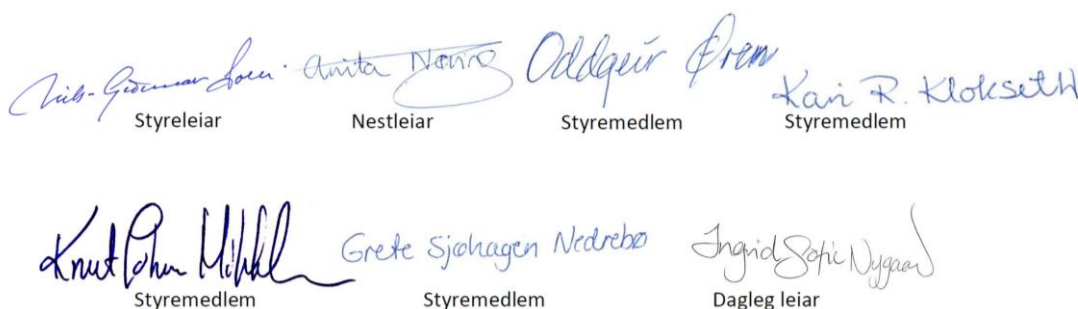 Nils-Gunnar Anita Oddgeir Øren Kari R. Klokseth
Styreleiar Nestleiar Styremedlem Styremedlem
Knut Johan Grete Sjøhagen Nedrebø Ingrid Sofie Nygaard
Styremedlem Styremedlem Dagleg leiar